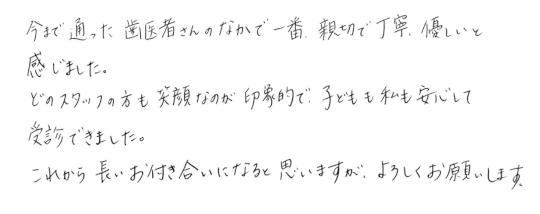 今まで通った歯医者さんのなかで一番、親切で丁寧、優しいと
感じました。
どのスタッフの方も笑顔なのが印象的で、子どもも私も安心して
受診できました。
これから長いお付き合いになると思いますが、よろしくお願いします。